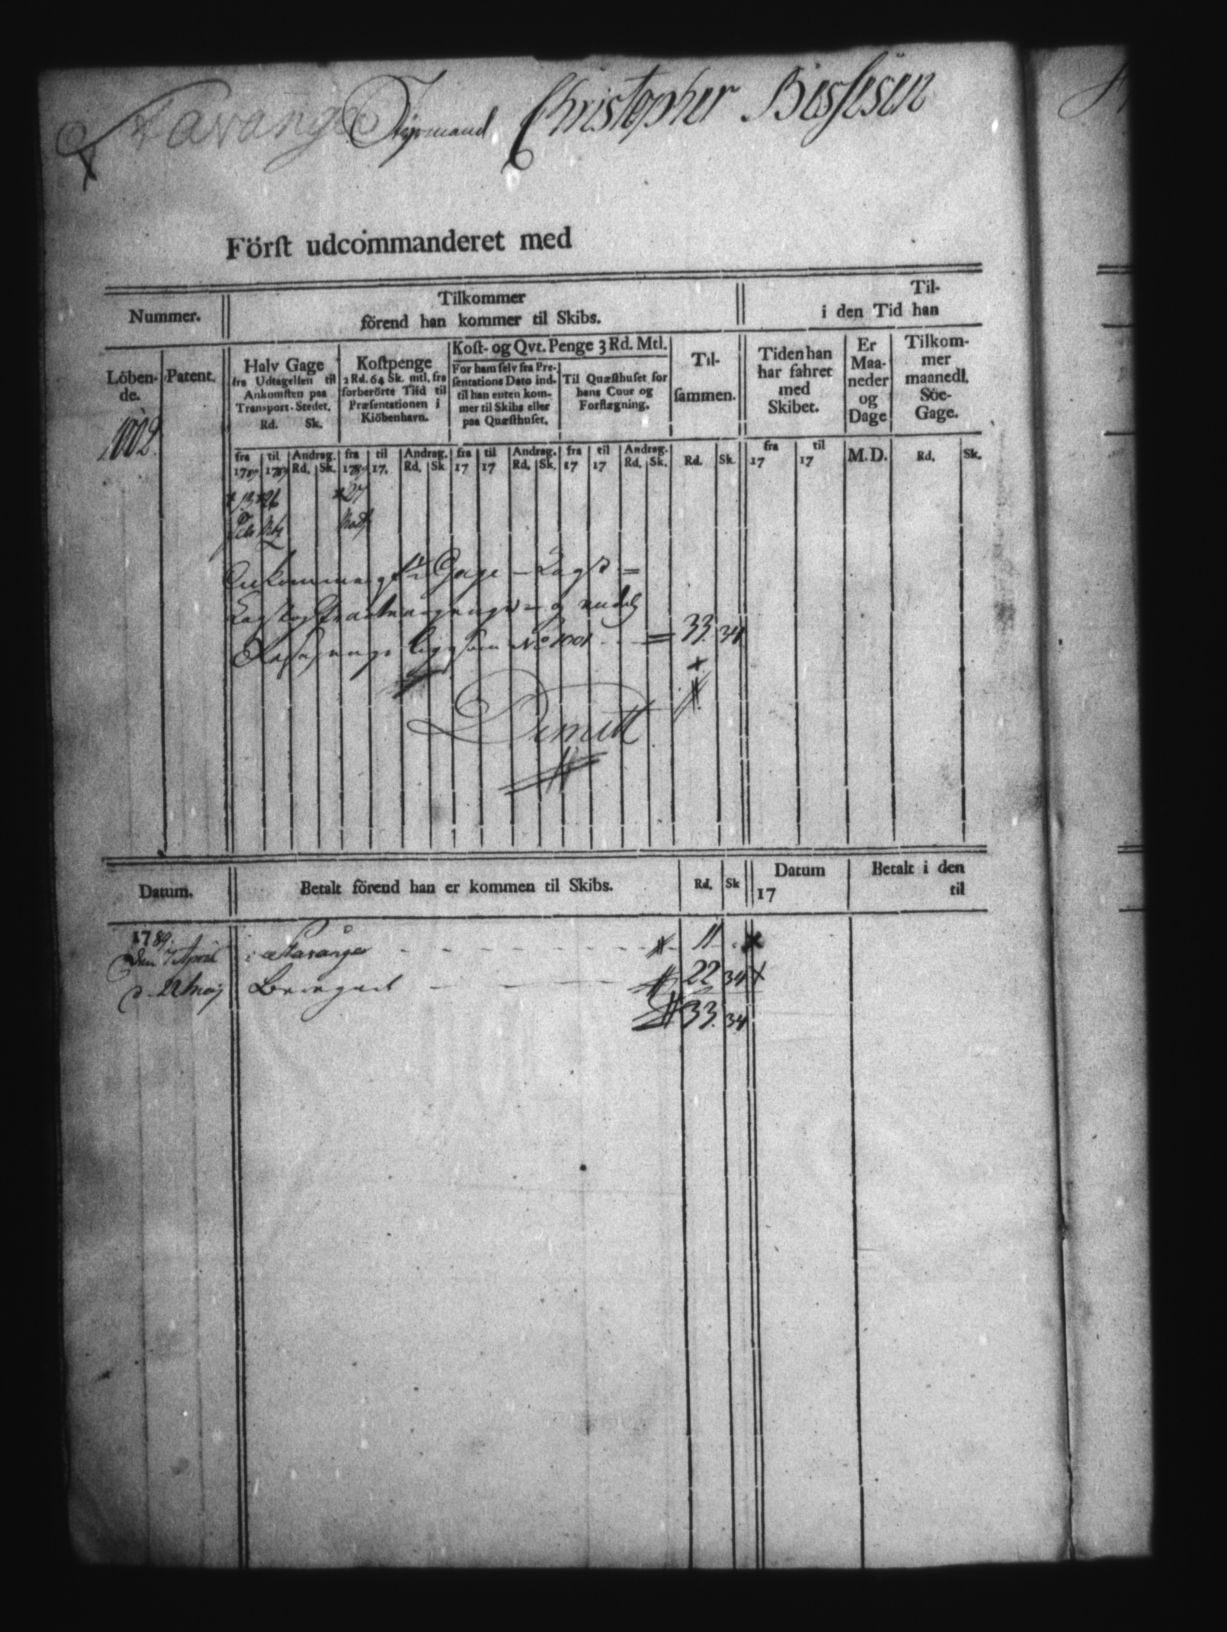 Stavanger Styrmand Christopher Bessesen
Förſt udcommanderet med
Nummer.
Tilkommer
förend han kommer til Skibs.
Til-
i den Tid han
Löben-
de.
Patent.
Halv Gage
fra Udtagelſen til
Ankomſten paa
Transport-Stedet.
Rd. Sk.
Koſtpenge
2 Rd. 64 Sk. mtl. fra
forberörte Tiid til
Præſentationen i
Kiöbenhavn.
Koſt- og Qvt. Penge 3 Rd. Mtl.
For ham ſelv fra Pre-
ſentations Dato ind-
til han enten kom-
mer til Skibs eller
paa Quæſthuſet.
Til Quæſthuſet for
hans Cour og
Forflægning.
Til-
ſammen.
Tiden han
har fahret
med
Skibet.
Er
Maa-
neder
og
Dage
Tilkom-
mer
maanedl.
Söe-
Gage.
1002.
fra til Andrag. fra til Andrag. fra til Andrag. fra til Andrag. fra til
1789 1789 Rd. Sk. 1789 17. Rd. Sk. 17 17 Rd. Sk. 17 17 Rd. Sk. Rd. Sk. 17 17 M.D. Rd. Sk.
13 26 27
Gage
No 1001 = 33. 34
Dimitt
Datum.
Betalt förend han er kommen til Skibs.
Rd. Sk
Datum
17
Betalt i den
til
1789.
den 7 April i Stavanger 11
d. 22 Maj 22 34
33. 34